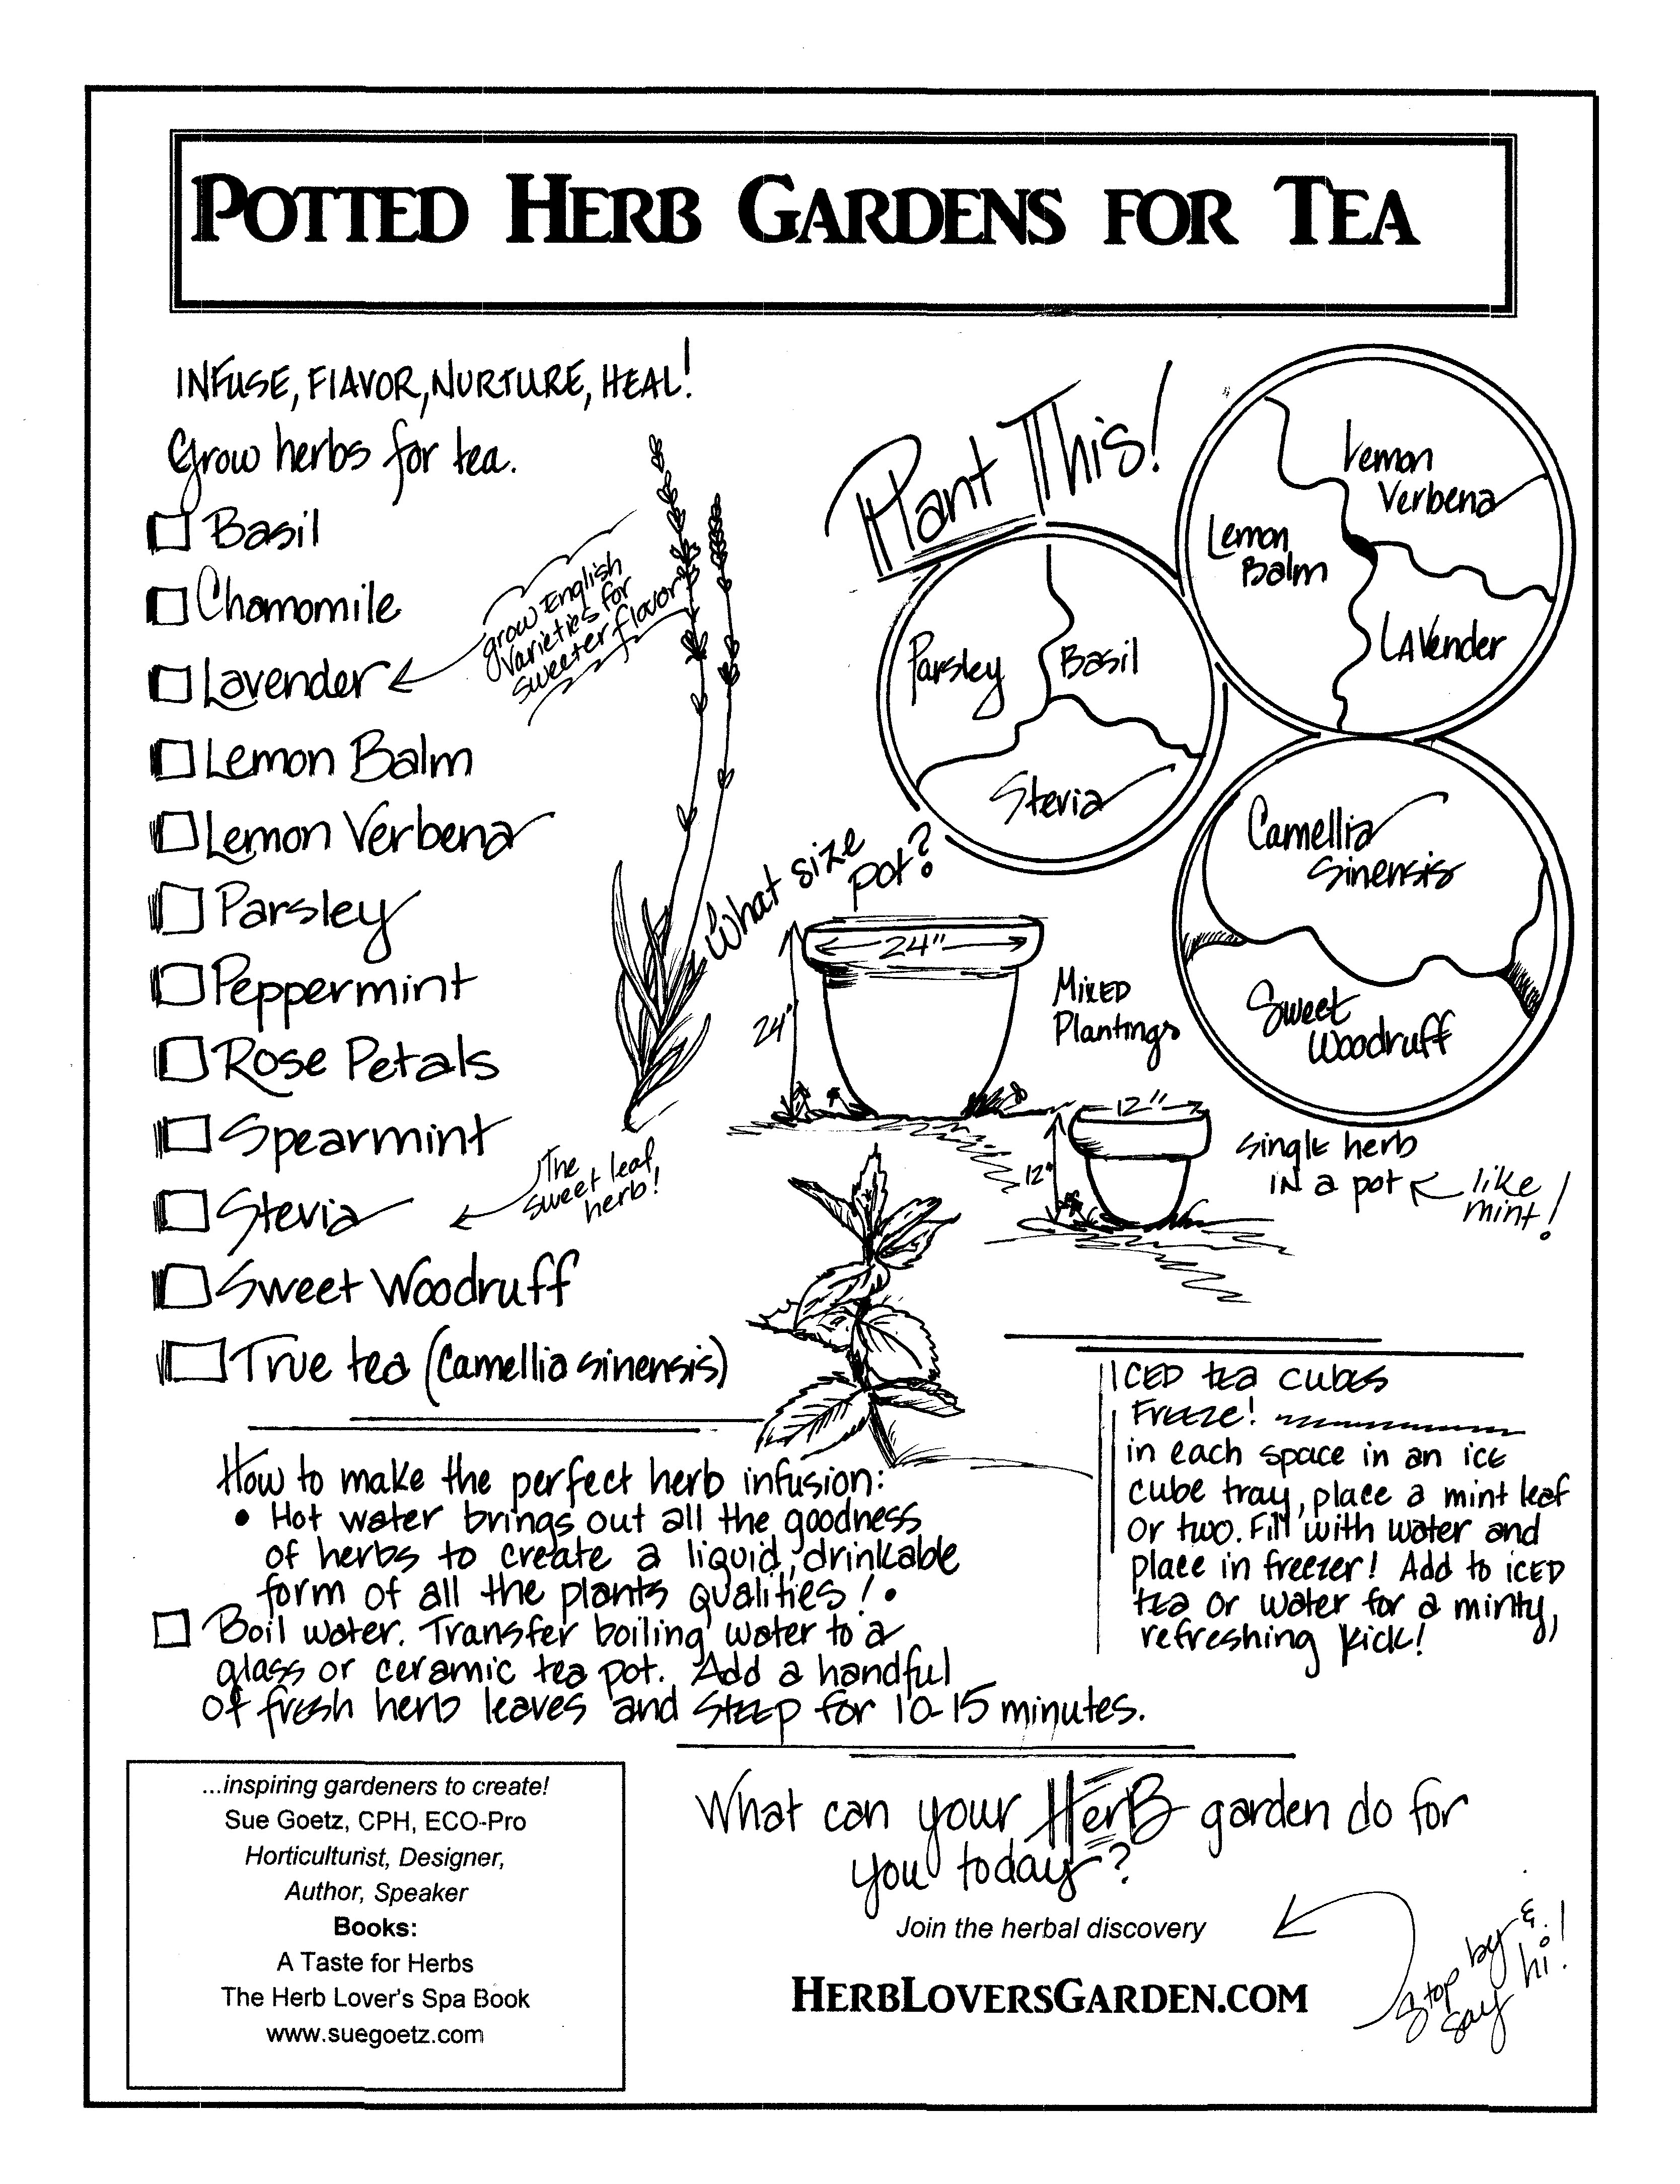 POTTED HERB GARDENS FOR TEA
INFUSE, FLAVOR, NURTURE, HEAL!
Grow herbs for tea.
Basil
Chamomile
Lavender
grow English
Varieties for
sweeter flavor
Lemon Balm
Lemon Verbena
Parsley
Peppermint
Rose Petals
Spearmint
Stevia
The
sweet leaf
herb!
Sweet Woodruff
True tea (Camellia sinensis)
Plant This!
Parsley
Basil
Stevia
Lemon
Verbena
Lemon
Balm
LAVender
Camellia
Sinensis
Sweet
Woodruff
What size
pot?
24"
24"
MIXED
Plantings
12"
12"
single herb
IN a pot
like
mint!
How to make the perfect herb infusion:
• Hot water brings out all the goodness
of herbs to create a liquid, drinkable
form of all the plants qualities! •
Boil water. Transfer boiling water to a
glass or ceramic tea pot. Add a handful
of fresh herb leaves and STEEP for 10-15 minutes.
ICED tea cubes
FREEZE!
in each space in an ice
cube tray, place a mint leaf
or two. Fill with water and
place in freezer! Add to ICED
tea or water for a minty,
refreshing kick!
...inspiring gardeners to create!
Sue Goetz, CPH, ECO-Pro
Horticulturist, Designer,
Author, Speaker
Books:
A Taste for Herbs
The Herb Lover's Spa Book
www.suegoetz.com
What can your HerB garden do for
you today?
Join the herbal discovery
HERBLOVERSGARDEN.COM
Stop by &
say hi!